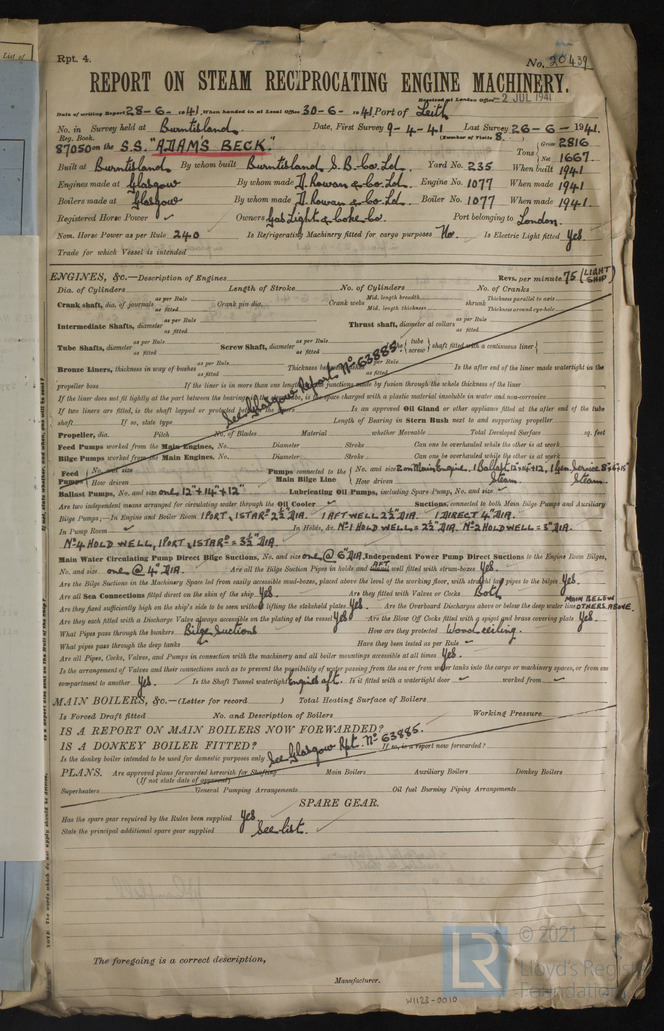 List of
Rpt. 4.
No. 20439
REPORT ON STEAM RECIPROCATING ENGINE MACHINERY.
Received at London Office -2 JUL 1941
Date of writing Report 28-6-1941. When handed in at Local Office 30-6-1941. Port of Leith
No. in Survey held at Burntisland Date, First Survey 9-4-41 Last Survey 26-6-1941.
Reg. Book. (Number of Visits 8.
87050 on the S.S. "ADAM'S BECK." Tons { Gross 2816
Net 1667
Built at Burntisland By whom built Burntisland S.B. Co. Ld. Yard No. 235 When built 1941
Engines made at Glasgow By whom made D. Rowan & Co. Ld. Engine No. 1077 When made 1941
Boilers made at Glasgow By whom made D. Rowan & Co. Ld. Boiler No. 1077 When made 1941
Registered Horse Power Owners Gas Light & Coke Co. Port belonging to London.
Nom. Horse Power as per Rule 240 Is Refrigerating Machinery fitted for cargo purposes No. Is Electric Light fitted Yes
Trade for which Vessel is intended
ENGINES, &c.—Description of Engines Revs. per minute 75 (LIGHT SHIP)
Dia. of Cylinders Length of Stroke No. of Cylinders No. of Cranks
Crank shaft, dia. of journals as per Rule as fitted Crank pin dia. Crank webs Mid. length breadth Mid. length thickness shrunk Thickness parallel to axis Thickness around eye-hole
Intermediate Shafts, diameter as per Rule as fitted Thrust shaft, diameter at collars as per Rule as fitted
Tube Shafts, diameter as per Rule as fitted Screw Shaft, diameter as per Rule as fitted { tube screw } shaft fitted with a continuous liner {
Bronze Liners, thickness in way of bushes as per Rule as fitted Thickness as per Rule as fitted Is the after end of the liner made watertight in the
See Glasgow Report No 63885.
propeller boss If the liner is in more than one length junctions made by fusion through the whole thickness of the liner
If the liner does not fit tightly at the part between the bearings is the space charged with a plastic material insoluble in water and non-corrosive
If two liners are fitted, is the shaft lapped or protected the liners Is an approved Oil Gland or other appliance fitted at the after end of the tube
shaft If so, state type Length of Bearing in Stern Bush next to and supporting propeller
Propeller, dia. Pitch No. of Blades Material whether Moveable Total Developed Surface sq. feet
Feed Pumps worked from the Main Engines, No. Diameter Stroke Can one be overhauled while the other is at work
Bilge Pumps worked from the Main Engines, No. Diameter Stroke Can one be overhauled while the other is at work
Feed Pumps { No. and size How driven Pumps connected to the Main Bilge Line { No. and size 2 on Main Engine, 1 Ballast 12"x14"x12", 1 Gen. Service 8"x6"x18"
How driven Steam. Steam.
Ballast Pumps, No. and size one, 12" + 14" + 12" Lubricating Oil Pumps, including Spare Pump, No. and size
Are two independent means arranged for circulating water through the Oil Cooler Suctions, connected to both Main Bilge Pumps and Auxiliary
Bilge Pumps;—In Engine and Boiler Room 1 PORT, 1 STAR'D 2½" DIA. 1 AFT WELL 2½" DIA. 1 DIRECT 4" DIA.
In Pump Room In Holds, &c. No 1 HOLD WELL = 2½" DIA. No 2 HOLD WELL = 3" DIA.
No 4 HOLD WELL, 1 PORT, 1 STAR'D = 3½" DIA.
Main Water Circulating Pump Direct Bilge Suctions, No. and size one @ 6" DIA. Independent Power Pump Direct Suctions to the Engine Room Bilges,
No. and size one @ 4" DIA. Are all the Bilge Suction Pipes in holds and AFT well fitted with strum-boxes Yes.
Are the Bilge Suctions in the Machinery Space led from easily accessible mud-boxes, placed above the level of the working floor, with straight tail pipes to the bilges Yes.
Are all Sea Connections fitted direct on the skin of the ship Yes. Are they fitted with Valves or Cocks Both
Are they fixed sufficiently high on the ship's side to be seen without lifting the stokehold plates Yes. Are the Overboard Discharges above or below the deep water line MAIN BELOW OTHERS ABOVE.
Are they each fitted with a Discharge Valve always accessible on the plating of the vessel Yes Are the Blow Off Cocks fitted with a spigot and brass covering plate Yes.
What Pipes pass through the bunkers Bilge Suctions How are they protected Wood ceiling.
What pipes pass through the deep tanks Have they been tested as per Rule
Are all Pipes, Cocks, Valves, and Pumps in connection with the machinery and all boiler mountings accessible at all times Yes.
Is the arrangement of Valves and their connections such as to prevent the possibility of water passing from the sea or from water tanks into the cargo or machinery spaces, or from one
compartment to another Yes. Is the Shaft Tunnel watertight Engines aft. Is it fitted with a watertight door worked from
MAIN BOILERS, &c.—(Letter for record ) Total Heating Surface of Boilers
Is Forced Draft fitted No. and Description of Boilers Working Pressure
IS A REPORT ON MAIN BOILERS NOW FORWARDED?
IS A DONKEY BOILER FITTED? If so, is a report now forwarded?
See Glasgow Rpt. No 63885.
Is the donkey boiler intended to be used for domestic purposes only
PLANS. Are approved plans forwarded herewith for Shafting Main Boilers Auxiliary Boilers Donkey Boilers
(If not state date of approval)
Superheaters General Pumping Arrangements Oil fuel Burning Piping Arrangements
SPARE GEAR.
Has the spare gear required by the Rules been supplied Yes
State the principal additional spare gear supplied See list.
The foregoing is a correct description,
Manufacturer.
W1123-0010
LR
© 2021
Lloyd's Register
Foundation